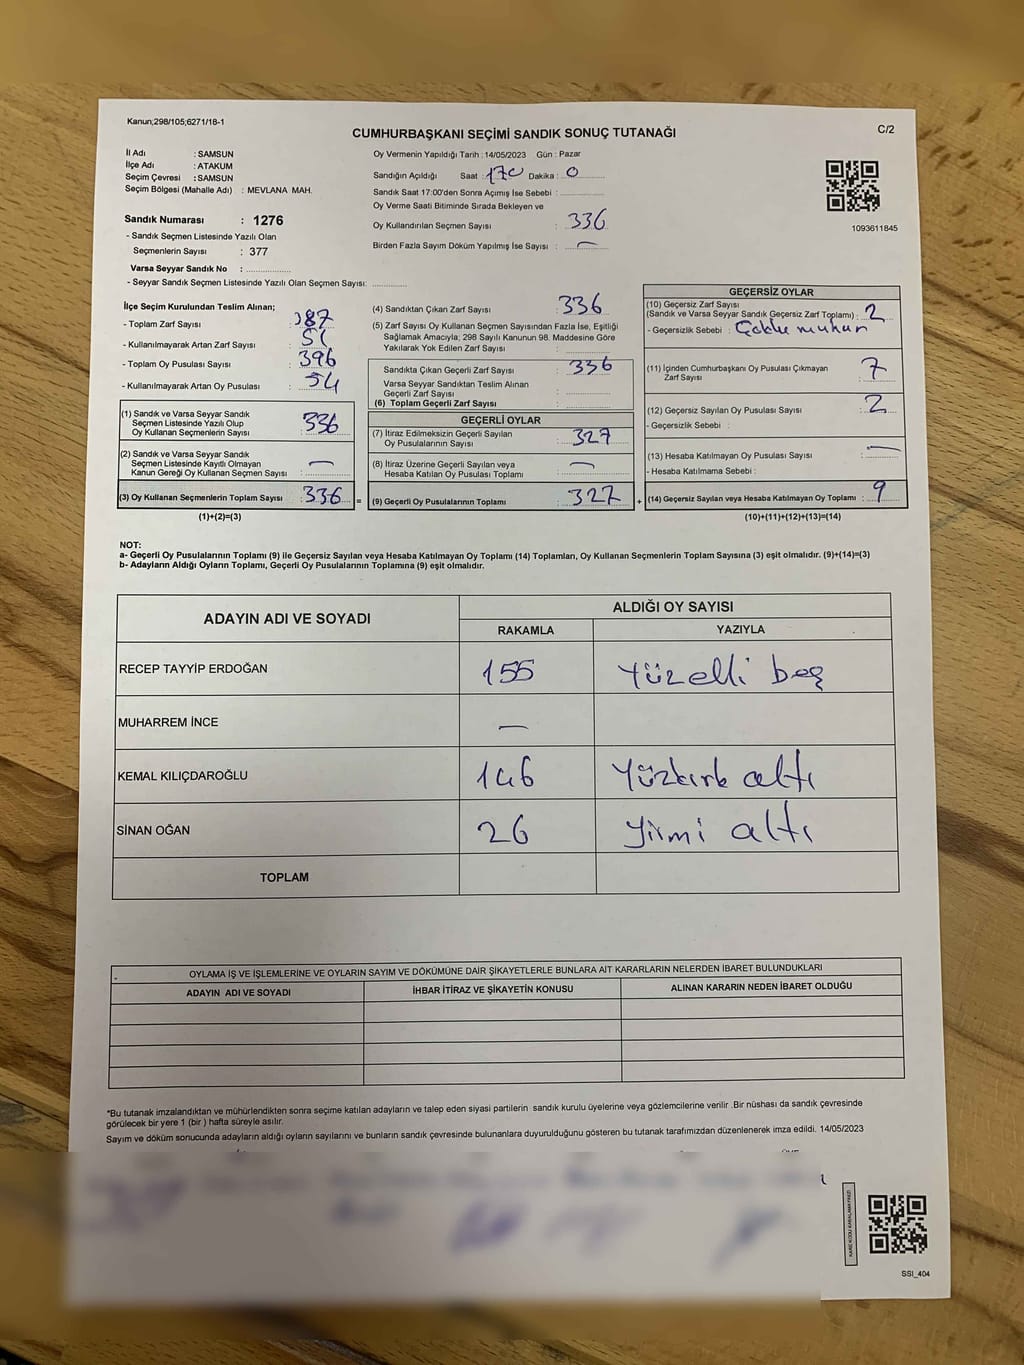 Kanun;298/105;6271/18-1
C/2
CUMHURBAŞKANI SEÇİMİ SANDIK SONUÇ TUTANAĞI
İl Adı : SAMSUN
İlçe Adı : ATAKUM
Seçim Çevresi : SAMSUN
Seçim Bölgesi (Mahalle Adı) : MEVLANA MAH.
Sandık Numarası : 1276
- Sandık Seçmen Listesinde Yazılı Olan
Seçmenlerin Sayısı : 377
Varsa Seyyar Sandık No :
- Seyyar Sandık Seçmen Listesinde Yazılı Olan Seçmen Sayısı:
Oy Vermenin Yapıldığı Tarih : 14/05/2023 Gün : Pazar
Sandığın Açıldığı Saat : Dakika : 0
Sandık Saat 17:00'den Sonra Açımış İse Sebebi :
Oy Verme Saati Bitiminde Sırada Bekleyen ve
Oy Kullandırılan Seçmen Sayısı : 336
Birden Fazla Sayım Döküm Yapılmış İse Sayısı : —
1093611845
İlçe Seçim Kurulundan Teslim Alınan;
- Toplam Zarf Sayısı : 387
- Kullanılmayarak Artan Zarf Sayısı :
- Toplam Oy Pusulası Sayısı : 396
- Kullanılmayarak Artan Oy Pusulası : 54
(1) Sandık ve Varsa Seyyar Sandık
Seçmen Listesinde Yazılı Olup
Oy Kullanan Seçmenlerin Sayısı : 336
(2) Sandık ve Varsa Seyyar Sandık
Seçmen Listesinde Kayıtlı Olmayan
Kanun Gereği Oy Kullanan Seçmen Sayısı : —
(3) Oy Kullanan Seçmenlerin Toplam Sayısı : 336 =
(1)+(2)=(3)
(4) Sandıktan Çıkan Zarf Sayısı : 336
(5) Zarf Sayısı Oy Kullanan Seçmen Sayısından Fazla İse, Eşitliği
Sağlamak Amacıyla; 298 Sayılı Kanunun 98. Maddesine Göre
Yakılarak Yok Edilen Zarf Sayısı :
Sandıkta Çıkan Geçerli Zarf Sayısı : 336
Varsa Seyyar Sandıktan Teslim Alınan
Geçerli Zarf Sayısı :
(6) Toplam Geçerli Zarf Sayısı :
GEÇERLİ OYLAR
(7) İtiraz Edilmeksizin Geçerli Sayılan
Oy Pusulalarının Sayısı : 327
(8) İtiraz Üzerine Geçerli Sayılan veya
Hesaba Katılan Oy Pusulası Toplamı : —
(9) Geçerli Oy Pusulalarının Toplamı : 327 +
GEÇERSİZ OYLAR
(10) Geçersiz Zarf Sayısı
(Sandık ve Varsa Seyyar Sandık Geçersiz Zarf Toplamı) : 2
- Geçersizlik Sebebi :
(11) İçinden Cumhurbaşkanı Oy Pusulası Çıkmayan
Zarf Sayısı : 7
(12) Geçersiz Sayılan Oy Pusulası Sayısı : 2
- Geçersizlik Sebebi :
(13) Hesaba Katılmayan Oy Pusulası Sayısı : —
- Hesaba Katılmama Sebebi :
(14) Geçersiz Sayılan veya Hesaba Katılmayan Oy Toplamı : 9
(10)+(11)+(12)+(13)=(14)
NOT:
a- Geçerli Oy Pusulalarının Toplamı (9) ile Geçersiz Sayılan veya Hesaba Katılmayan Oy Toplamı (14) Toplamları, Oy Kullanan Seçmenlerin Toplam Sayısına (3) eşit olmalıdır. (9)+(14)=(3)
b- Adayların Aldığı Oyların Toplamı, Geçerli Oy Pusulalarının Toplamına (9) eşit olmalıdır.
ADAYIN ADI VE SOYADI
ALDIĞI OY SAYISI
RAKAMLA YAZIYLA
RECEP TAYYİP ERDOĞAN 155 Yüzelli beş
MUHARREM İNCE —
KEMAL KILIÇDAROĞLU 146 Yüzkırk altı
SİNAN OĞAN 26 Yirmi altı
TOPLAM
OYLAMA İŞ VE İŞLEMLERİNE VE OYLARIN SAYIM VE DÖKÜMÜNE DAİR ŞİKAYETLERLE BUNLARA AİT KARARLARIN NELERDEN İBARET BULUNDUKLARI
ADAYIN ADI VE SOYADI İHBAR İTİRAZ VE ŞİKAYETİN KONUSU ALINAN KARARIN NEDEN İBARET OLDUĞU
*Bu tutanak imzalandıktan ve mühürlendikten sonra seçime katılan adayların ve talep eden siyasi partilerin sandık kurulu üyelerine veya gözlemcilerine verilir .Bir nüshası da sandık çevresinde
görülecek bir yere 1 (bir ) hafta süreyle asılır.
Sayım ve döküm sonucunda adayların aldığı oyların sayılarını ve bunların sandık çevresinde bulunanlara duyurulduğunu gösteren bu tutanak tarafımızdan düzenlenerek imza edildi. 14/05/2023
KARE KODU KARALAMAYINIZ!
SSI_404